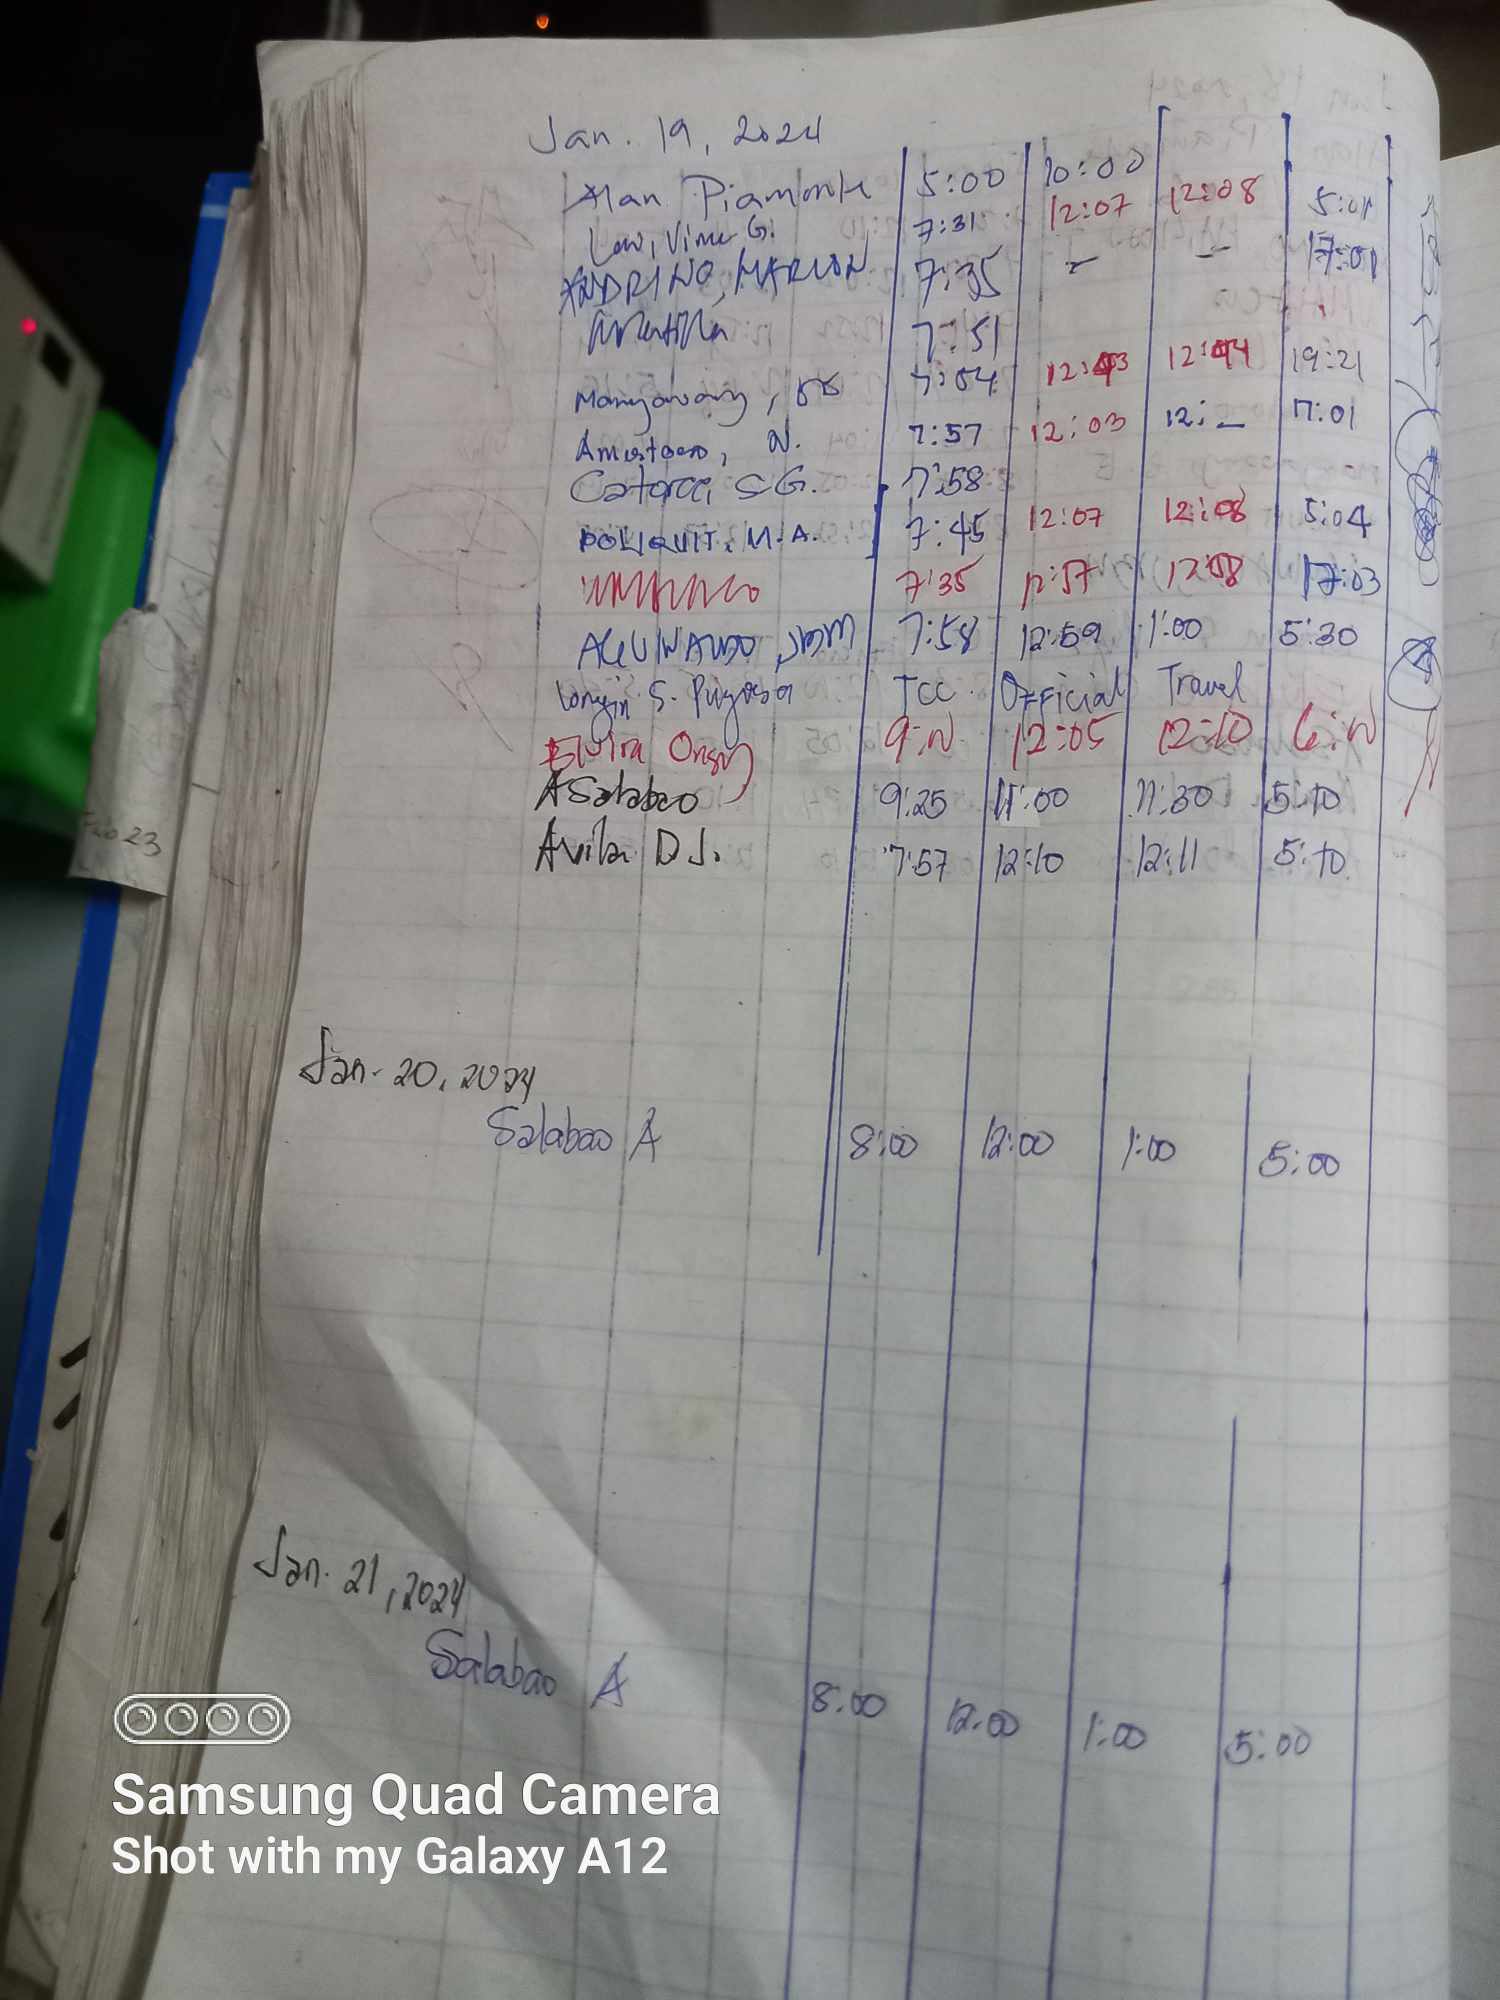 Jan. 19, 2024
Alan Piamonte 5:00 10:00
Law, Vime G. 7:31 12:07 12:08 5:01
ANDRINO, MARLON 7:35 - - 17:01
7:51
Mangawang, 7:54 12:43 12:44 19:21
Amistoso, N. 7:57 12:03 12: - 17:01
Catorce, S G. 7:58
POLIQUIT, M.A. 7:45 12:07 12:08 5:04
7:35 12:57 12:58 17:03
AGUINALDO JBM 7:58 12:59 1:00 5:30
Longin S. TCC. Official Travel
Elvira 9:N 12:05 12:10 6:N
A Salabao 9:25 11:00 11:30 5:10
Avila D J. 7:57 12:10 12:11 5:10
Jan. 20, 2024
Salabao A 8:00 12:00 1:00 5:00
Jan. 21, 2024
Salabao A 8:00 12:00 1:00 5:00
Feb 23
Samsung Quad Camera
Shot with my Galaxy A12